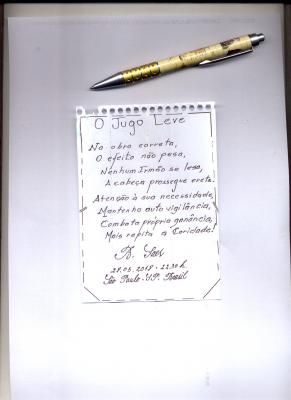 O Jugo Leve
Na obra correta,
O efeito não pesa,
Nenhum Irmão se lesa,
A cabeça prossegue ereta.
Atenção à sua necessidade,
Mantenha auto vigilância,
Combata própria ganância,
Mais repita a Caridade!
28.05.2018 - 12:30 h.
São Paulo - S.P. Brasil